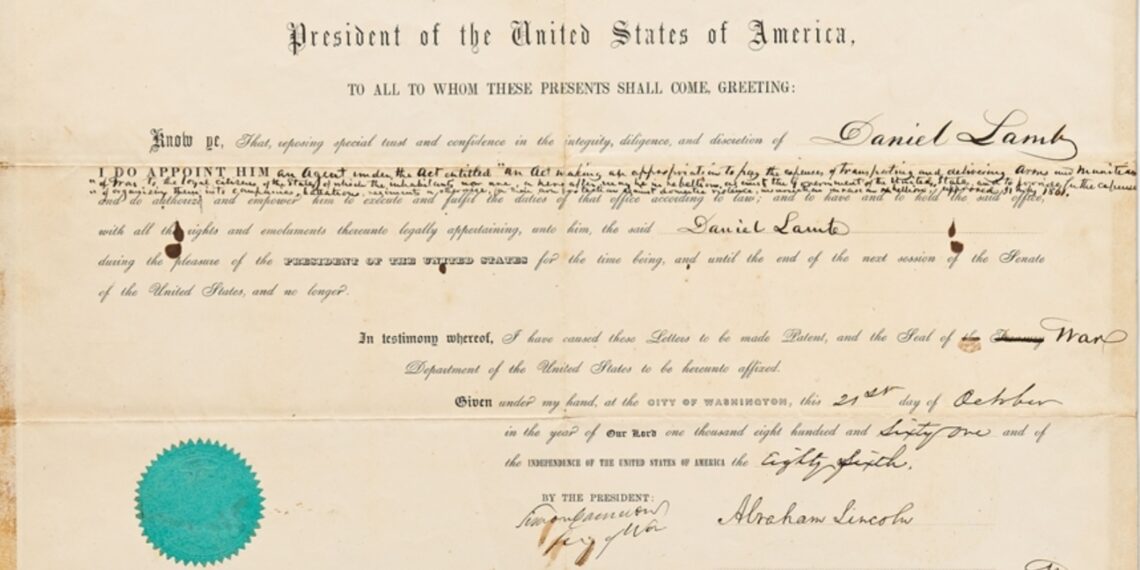 President of the United States of America,
TO ALL TO WHOM THESE PRESENTS SHALL COME, GREETING:
Know ye, That, reposing special trust and confidence in the integrity, diligence, and discretion of Daniel Lamb
I DO APPOINT HIM an Agent under the Act entitled "An Act making an appropriation to pay the expenses of transporting and delivering Arms and Munitions
"of War, to the loyal citizens of the States of which the inhabitants now are, or hereafter may be in rebellion against the Government of the United States, and to provide for the expense
"of organizing them into Companies, approved July 1861.
and do authorize and empower him to execute and fulfil the duties of that office according to law; and to have and to hold the said office,
with all the rights and emoluments thereunto legally appertaining, unto him, the said Daniel Lamb
during the pleasure of the PRESIDENT OF THE UNITED STATES for the time being, and until the end of the next session of the Senate
of the United States, and no longer.
In testimony whereof, I have caused these Letters to be made Patent, and the Seal of the War
Department of the United States to be hereunto affixed.
Given under my hand, at the CITY OF WASHINGTON, this 21st day of October
in the year of Our Lord one thousand eight hundred and Sixty one and of
the INDEPENDENCE OF THE UNITED STATES OF AMERICA the Eighty Sixth.
BY THE PRESIDENT:
Simon Cameron Abraham Lincoln
Secy of War